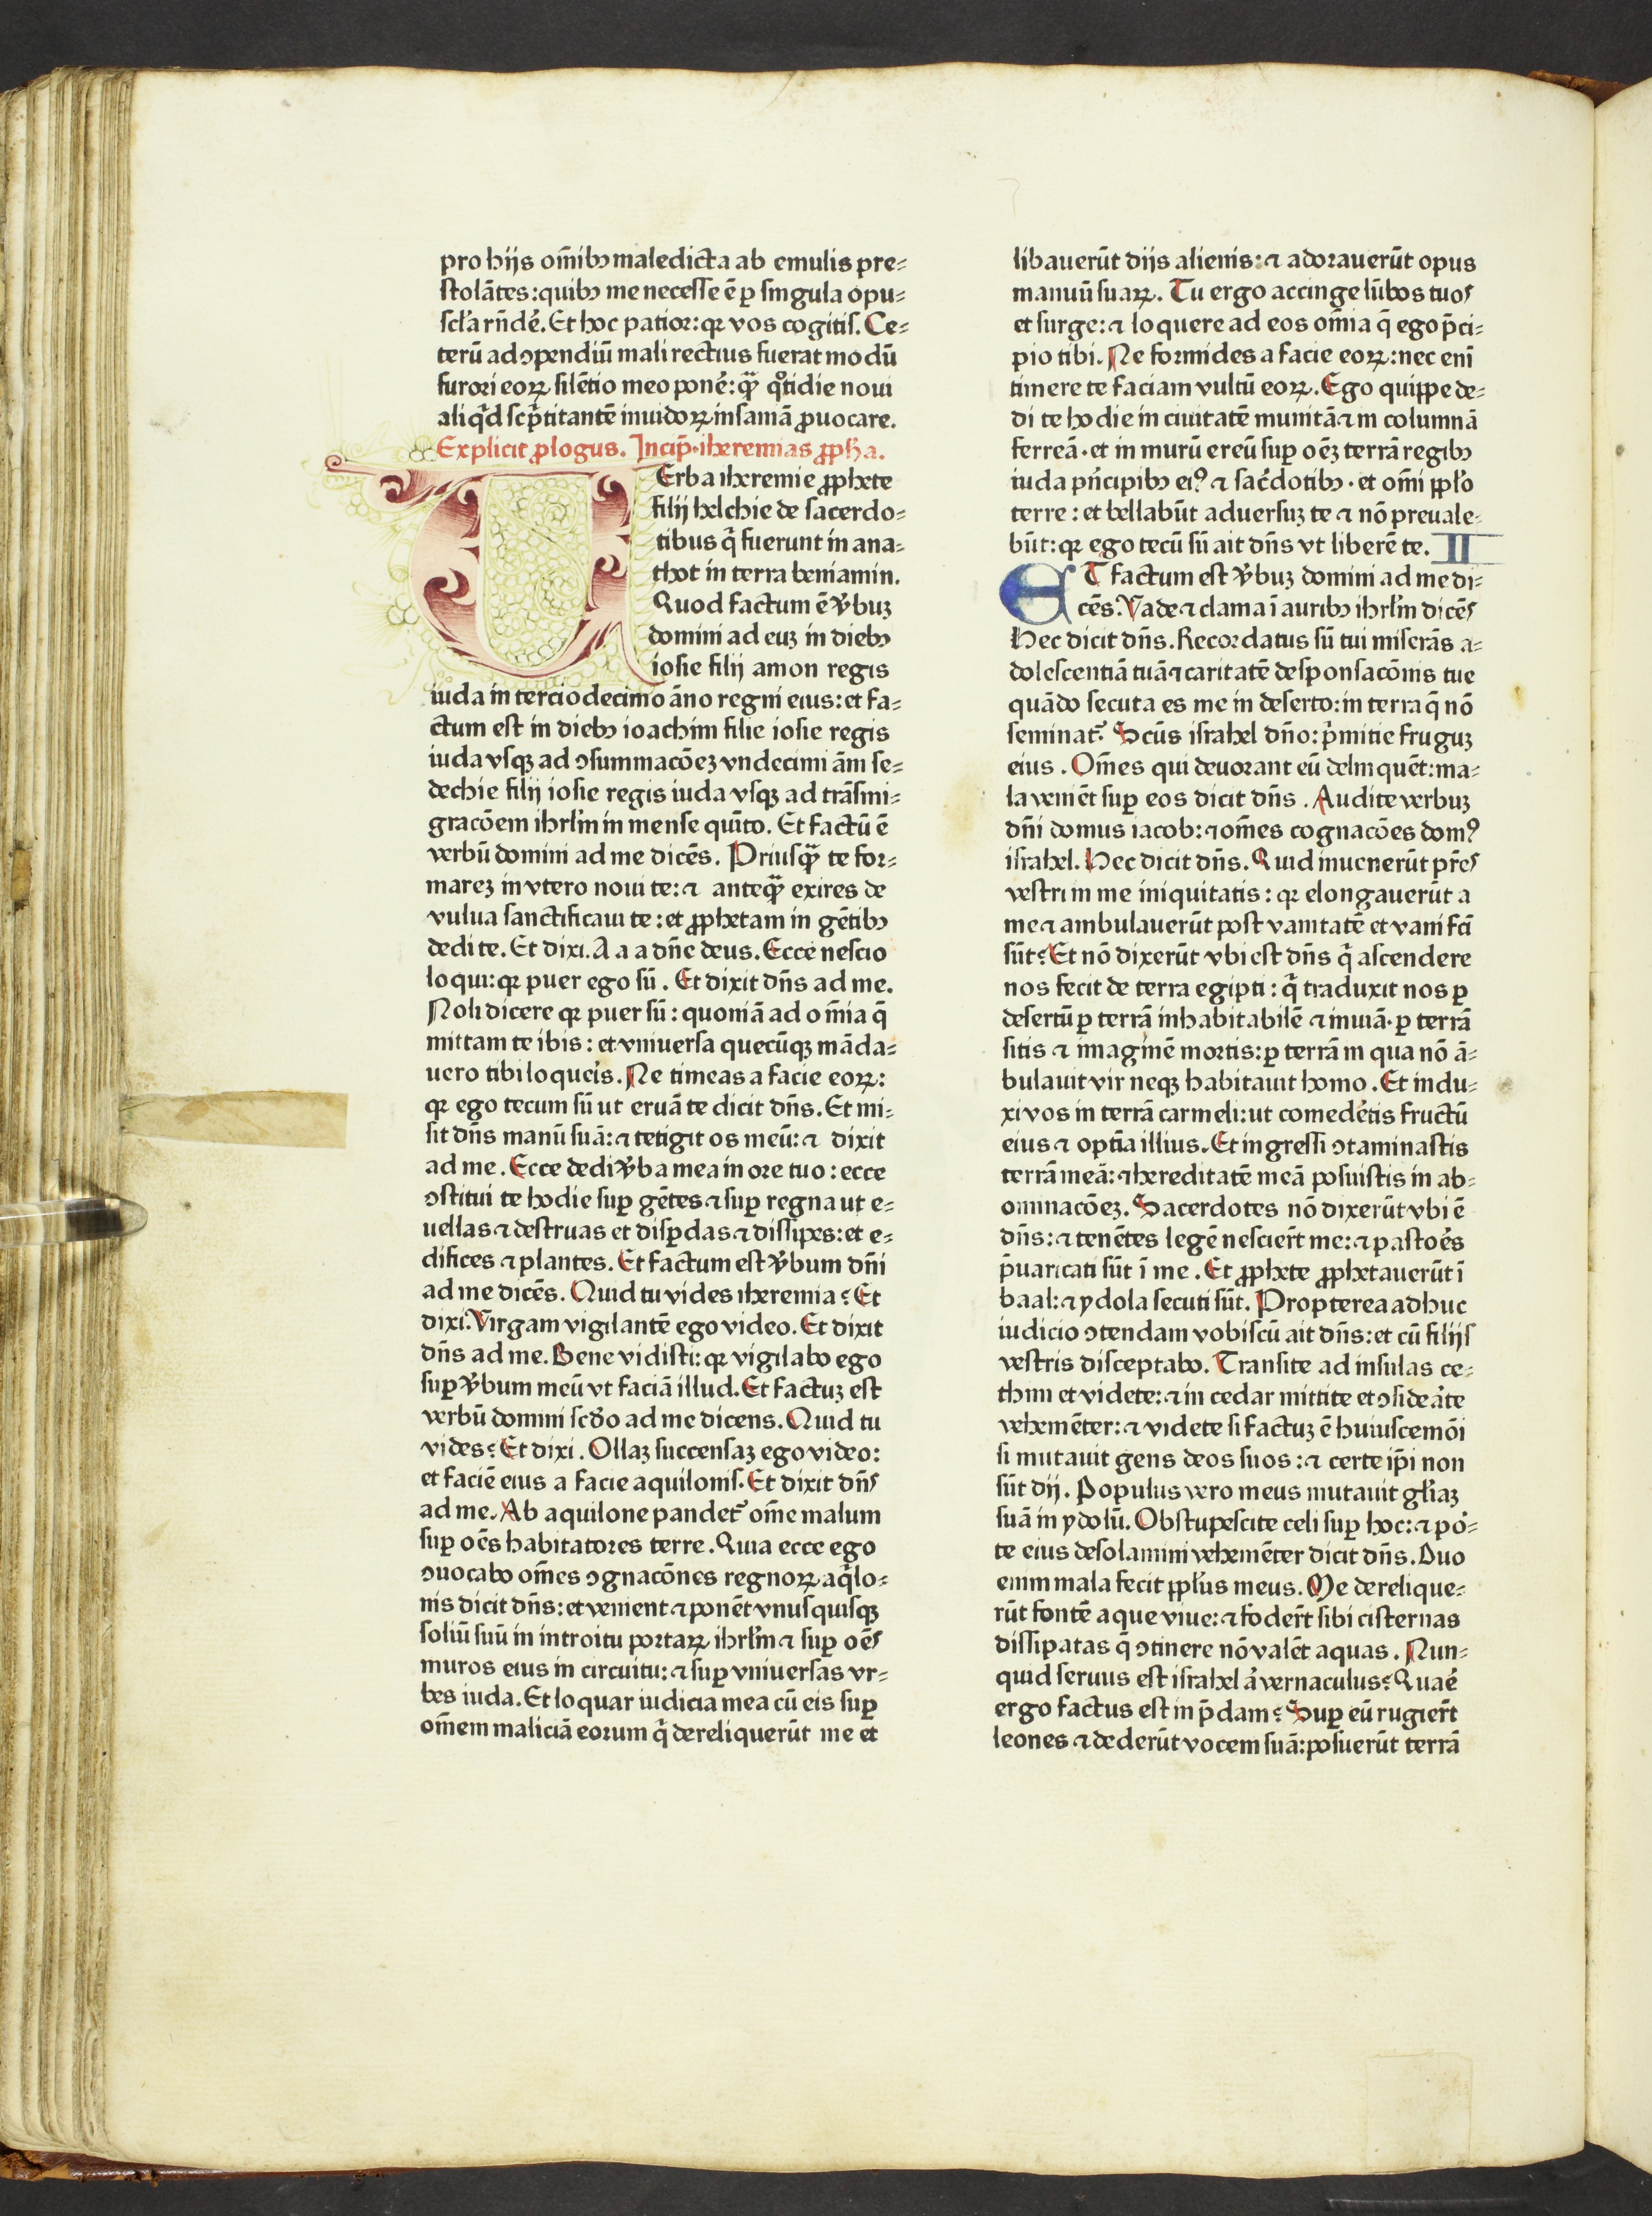 pro hijs om̄ibꝰ maledicta ab emulis pre⸗
stolātes: quibꝰ me necesse ē ꝑ singula opu⸗
scl̓a rn̄dē. Et hoc patior: qꝛ vos cogitis. Ce⸗
terū ad ↄpendiū mali rectius fuerat modū
furori eoꝝ silētio meo ponē: qꝫ̄ qͦtidie noui
aliqͥd scp̄titantē inuidoꝝ insaniā ꝓuocare.
Explicit ꝓlogus. Incip̄ iheremias ꝓph̄a.
VErba iheremie ꝓphete
filij helchie de sacerdo⸗
tibus qͥ fuerunt in ana⸗
thot in terra beniamin.
Quod factum ē v̓buꝫ
domini ad euꝫ in diebꝰ
iosie filij amon regis
iuda in terciodecimo āno regni eius: et fa⸗
ctum est in diebꝰ ioachim filie iosie regis
iuda vsqꝫ ad ↄsummacōeꝫ vndecimi āni se⸗
dechie filij iosie regis iuda vsqꝫ ad trāsmi⸗
gracōem ihrl̓m in mense quīto. Et factū ē
verbū domini ad me dicēs. Priusqꝫ̄ te for⸗
mareꝫ in vtero noui te: ⁊ anteqꝫ̄ exires de
vulua sanctificaui te: et ꝓphetam in gētibꝰ
dedi te. Et dixi. A a a dn̄e deus. Ecce nescio
loqui: qꝛ puer ego sū. Et dixit dn̄s ad me.
Noli dicere qꝛ puer sū: quoniā ad om̄ia q̄
mittam te ibis: et vniuersa quecūqꝫ māda⸗
uero tibi loqueis̓. Ne timeas a facie eoꝝ:
qꝛ ego tecum sū ut eruā te dicit dn̄s. Et mi⸗
sit dn̄s manū suā: ⁊ tetigit os meū: ⁊ dixit
ad me. Ecce dedi v̓ba mea in ore tuo: ecce
ↄstitui te hodie suꝑ gētes ⁊ suꝑ regna ut e⸗
uellas ⁊ destruas et disꝑdas ⁊ dissipes: et e⸗
difices ⁊ plantes. Et factum est v̓bum dn̄i
ad me dicēs. Quid tu vides iheremia? Et
dixi. Virgam vigilantē ego video. Et dixit
dn̄s ad me. Bene vidisti: qꝛ vigilabo ego
suꝑ v̓bum meū vt faciā illud. Et factuꝫ est
verbū domini scd̓o ad me dicens. Quid tu
vides? Et dixi. Ollaꝫ succensaꝫ ego video:
et faciē eius a facie aquilonis. Et dixit dn̄s
ad me. Ab aquilone pandet᷑ om̄e malum
suꝑ oēs habitatores terre. Quia ecce ego
ↄuocabo om̄es ↄgnacōnes regnoꝝ aqͥlo⸗
nis dicit dn̄s: et venient ⁊ ponēt vnusquisqꝫ
soliū suū in introitu portaꝝ ihrl̓m ⁊ suꝑ oēs
muros eius in circuitu: ⁊ suꝑ vniuersas vr⸗
bes iuda. Et loquar iudicia mea cū eis suꝑ
om̄em maliciā eorum qͥ dereliquerūt me et
libauerūt dijs alienis: ⁊ adorauerūt opus
manuū suaꝝ. Tu ergo accinge lūbos tuos
et surge: ⁊ loquere ad eos om̄ia q̄ ego p̄ci⸗
pio tibi. Ne formides a facie eoꝝ: nec enī
timere te faciam vultū eoꝝ. Ego quippe de⸗
di te hodie in ciuitatē munitā ⁊ in columnā
ferreā. et in murū ereū suꝑ oēꝫ terrā regibꝰ
iuda pn̄cipibꝰ eiꝰ ⁊ sac̓dotibꝰ. et om̄i ppl̓o
terre: et bellabūt aduersuꝫ te ⁊ nō preuale⸗
būt: qꝛ ego tecū sū ait dn̄s vt liberē te. II
ET factum est v̓buꝫ domini ad me di⸗
cēs. Vade ⁊ clama ī auribꝰ ihrl̓m dicēs
Hec dicit dn̄s. Recordatus sū tui miserās a⸗
dolescentiā tuā ⁊ caritatē desponsacōnis tue
quādo secuta es me in deserto: in terra q̄ nō
seminat᷑. Scūs israhel dn̄o: pͥmitie fruguꝫ
eius. Om̄es qui deuorant eū delinquēt: ma⸗
la veniēt suꝑ eos dicit dn̄s. Audite verbuꝫ
dn̄i domus iacob: ⁊ om̄es cognacōes domꝰ
israhel. Hec dicit dn̄s. Quid inuenerūt pr̄es
vestri in me iniquitatis: qꝛ elongauerūt a
me ⁊ ambulauerūt post vanitatē et vani fc̄i
sūt? Et nō dixerūt vbi est dn̄s qͥ ascendere
nos fecit de terra egipti: qͥ traduxit nos ꝑ
desertū ꝑ terrā inhabitabilē ⁊ inuiā. ꝑ terrā
sitis ⁊ imaginē mortis: ꝑ terrā in qua nō ā⸗
bulauit vir neqꝫ habitauit homo. Et indu⸗
xi vos in terrā carmeli: ut comedēetis fructū
eius ⁊ optīa illius. Et ingressi ↄtaminastis
terrā meā: ⁊ hereditatē meā posuistis in ab⸗
ominacōeꝫ. Sacerdotes nō dixerūt vbi ē
dn̄s: ⁊ tenētes legē nescier̄t me: ⁊ pastoēs
p̄uaricati sūt ī me. Et ꝓphete ꝓphetauerūt ī
baal: ⁊ ydola secuti sūt. Propterea adhuc
iudicio ↄtendam vobiscū ait dn̄s: et cū filijs
vestris disceptabo. Transite ad insulas ce⸗
thim et videte: ⁊ in cedar mittite et ↄsideāte
vehemēter: ⁊ videte si factuꝫ ē huiuscemōi
si mutauit gens deos suos: ⁊ certe ip̄i non
sūt dij. Populus vero meus mutauit gl̓iaꝫ
suā in ydolū. Obstupescite celi suꝑ hoc: ⁊ po⸗
te eius desolamini vehemēter dicit dn̄s. Duo
enim mala fecit ppl̓us meus. Me derelique⸗
rūt fontē aque viue: ⁊ foder̄t sibi cisternas
dissipatas q̄ ↄtinere nō valēt aquas. Nun⸗
quid seruus est israhel a̓ vernaculus? Quaē
ergo factus est in p̄dam? Suꝑ eū rugier̄t
leones ⁊ dederūt vocem suā: posuerūt terrā